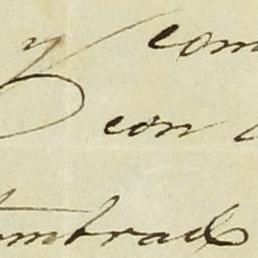 y com
con
ombrad